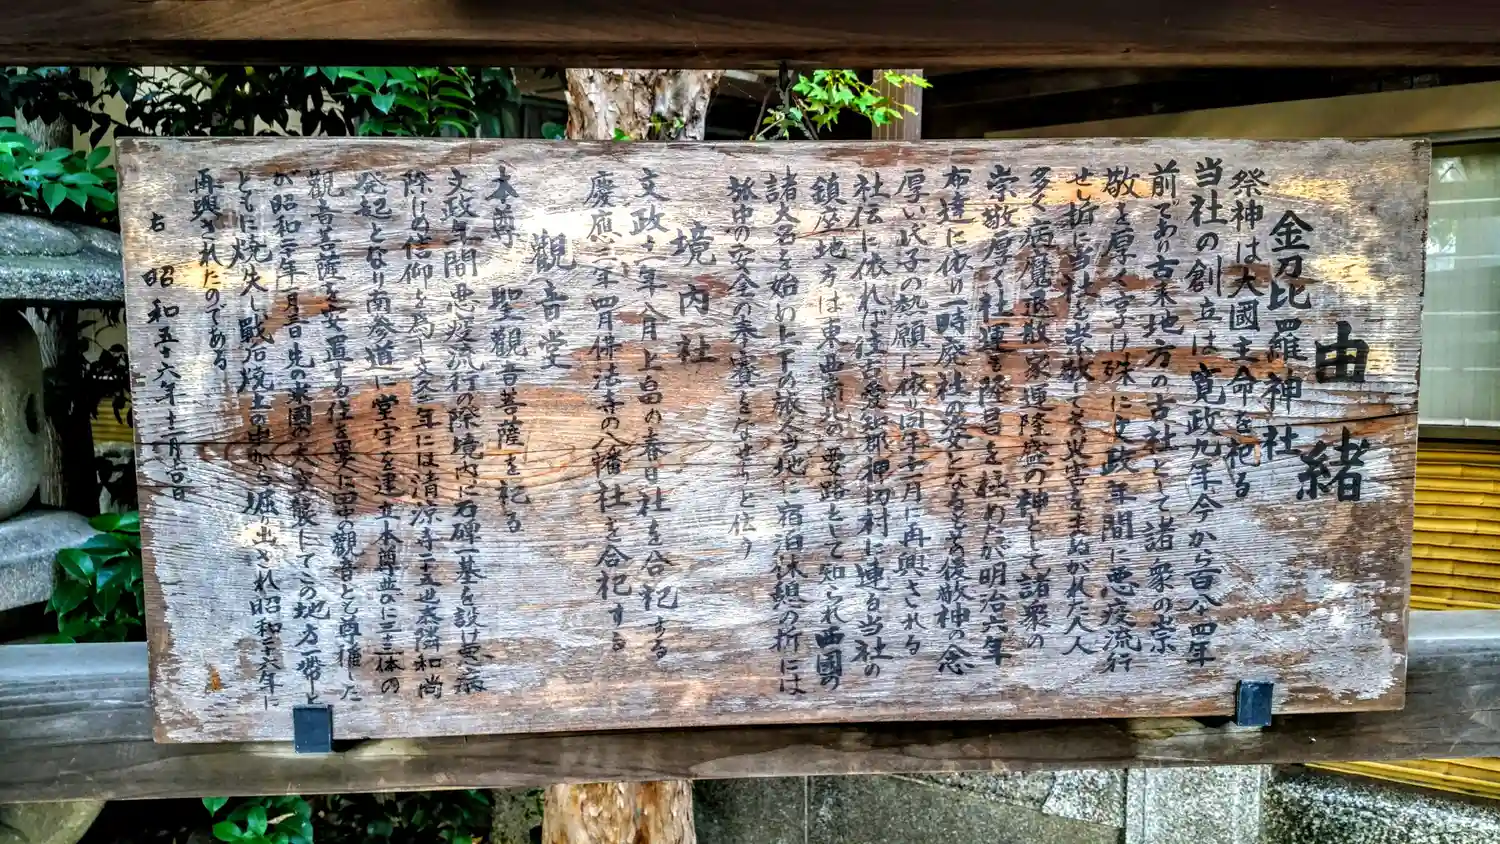 由緒
金刀比羅神社
祭神は大國主命を祀る
当社の創立は寛政九年今から百八十四年
前であり古来地方の古社として諸衆の崇
敬を厚く享け殊に文政年間に悪疫流行
せし折に当社を崇敬してを災害をまぬがれた人人
多く病魔退散家運隆盛の神として諸衆の
崇敬厚く社運も隆昌を極めたが明治六年
布達に依り一時廃社の姿となるもその後敬神の念
厚い氏子の熱願に依り同年十一月に再興される
社伝に依れば往古愛宕郡押切村に連る当社の
鎮座地方は東西南北の要路として知られ西國の
諸大名を始め上下の旅人当地に宿泊休憩の折には
旅中の安全の奉賽を行せりと伝う
境内社
文政十一年八月上田の春日社を合祀する
慶應二年四月佛法寺の八幡社を合祀する
觀音堂
本尊 聖觀音菩薩を祀る
文政年間悪疫流行の際境内に石碑一基を設け悪疫
除けの信仰を為し文久二年には清凉寺十五世泰隣和尚
発起となり南参道に堂宇を建立本尊並びに三十三体の
觀音菩薩を安置する住を異に田中の觀音と尊稱した
が昭和二十年一月三日先の米國の大空襲にてこの地方一帶と
ともに焼失し戰后焼土の中から堀り出され昭和二十六年に
再興されたのである
右 昭和五十六年十二月吉日